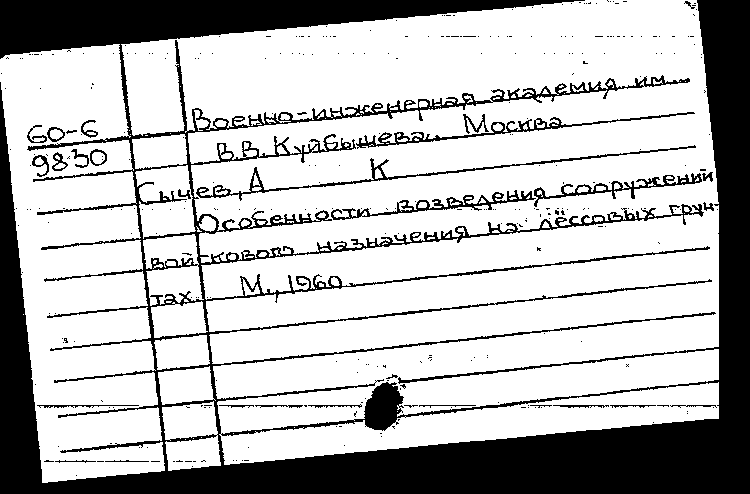 60-6
9830
Военно-инженерная академия им.
В.В. Куйбышева. Москва
Сычев, А К
Особенности возведения сооружений
войскового назначения на лёссовых грун-
тах. М., 1960.